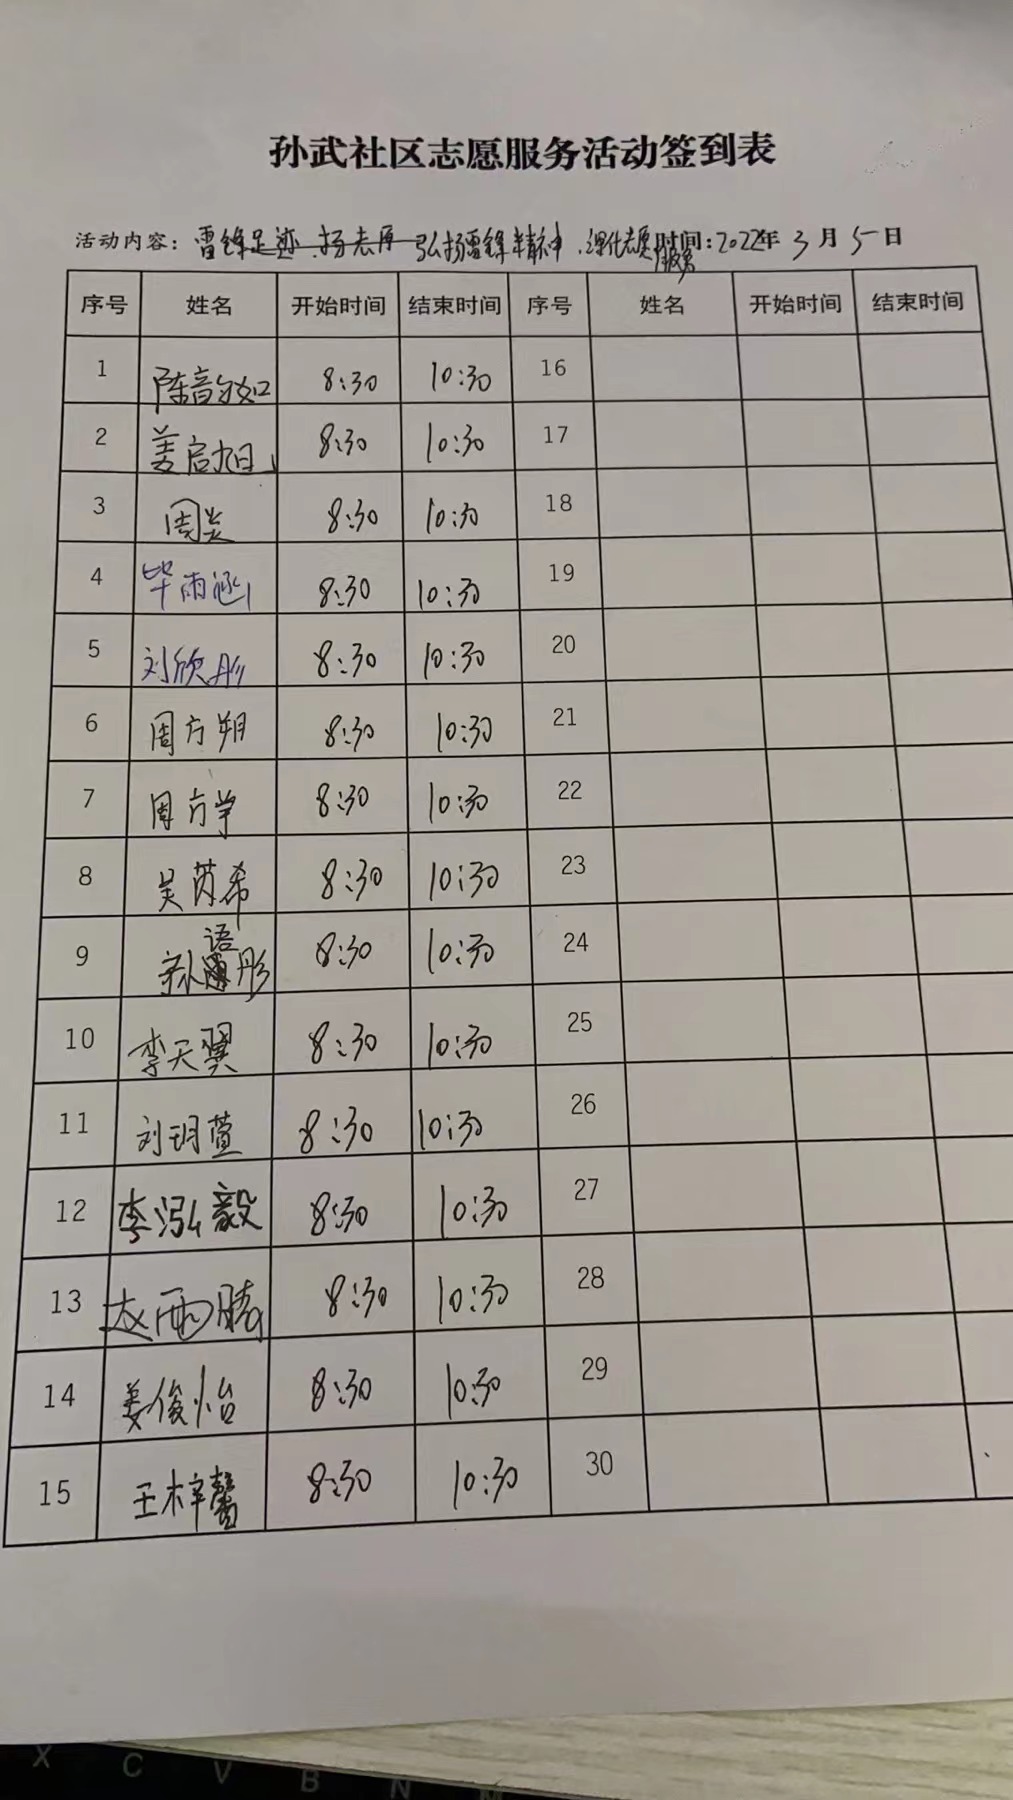 孙武社区志愿服务活动签到表
活动内容: 雷锋足迹.扬志愿 弘扬雷锋精神.深化志愿服务 时间:2022年3月5日
序号 姓名 开始时间 结束时间 序号 姓名 开始时间 结束时间
1 陈音如 8:30 10:30 16
2 姜启旭 8:30 10:30 17
3 周炎 8:30 10:30 18
4 毕雨涵 8:30 10:30 19
5 刘欣彤 8:30 10:30 20
6 周方朔 8:30 10:30 21
7 周方学 8:30 10:30 22
8 吴芮希 8:30 10:30 23
9 宋语彤 8:30 10:30 24
10 李天翼 8:30 10:30 25
11 刘玥萱 8:30 10:30 26
12 李泓毅 8:30 10:30 27
13 赵雨腾 8:30 10:30 28
14 姜俊怡 8:30 10:30 29
15 王梓馨 8:30 10:30 30
X C V B N